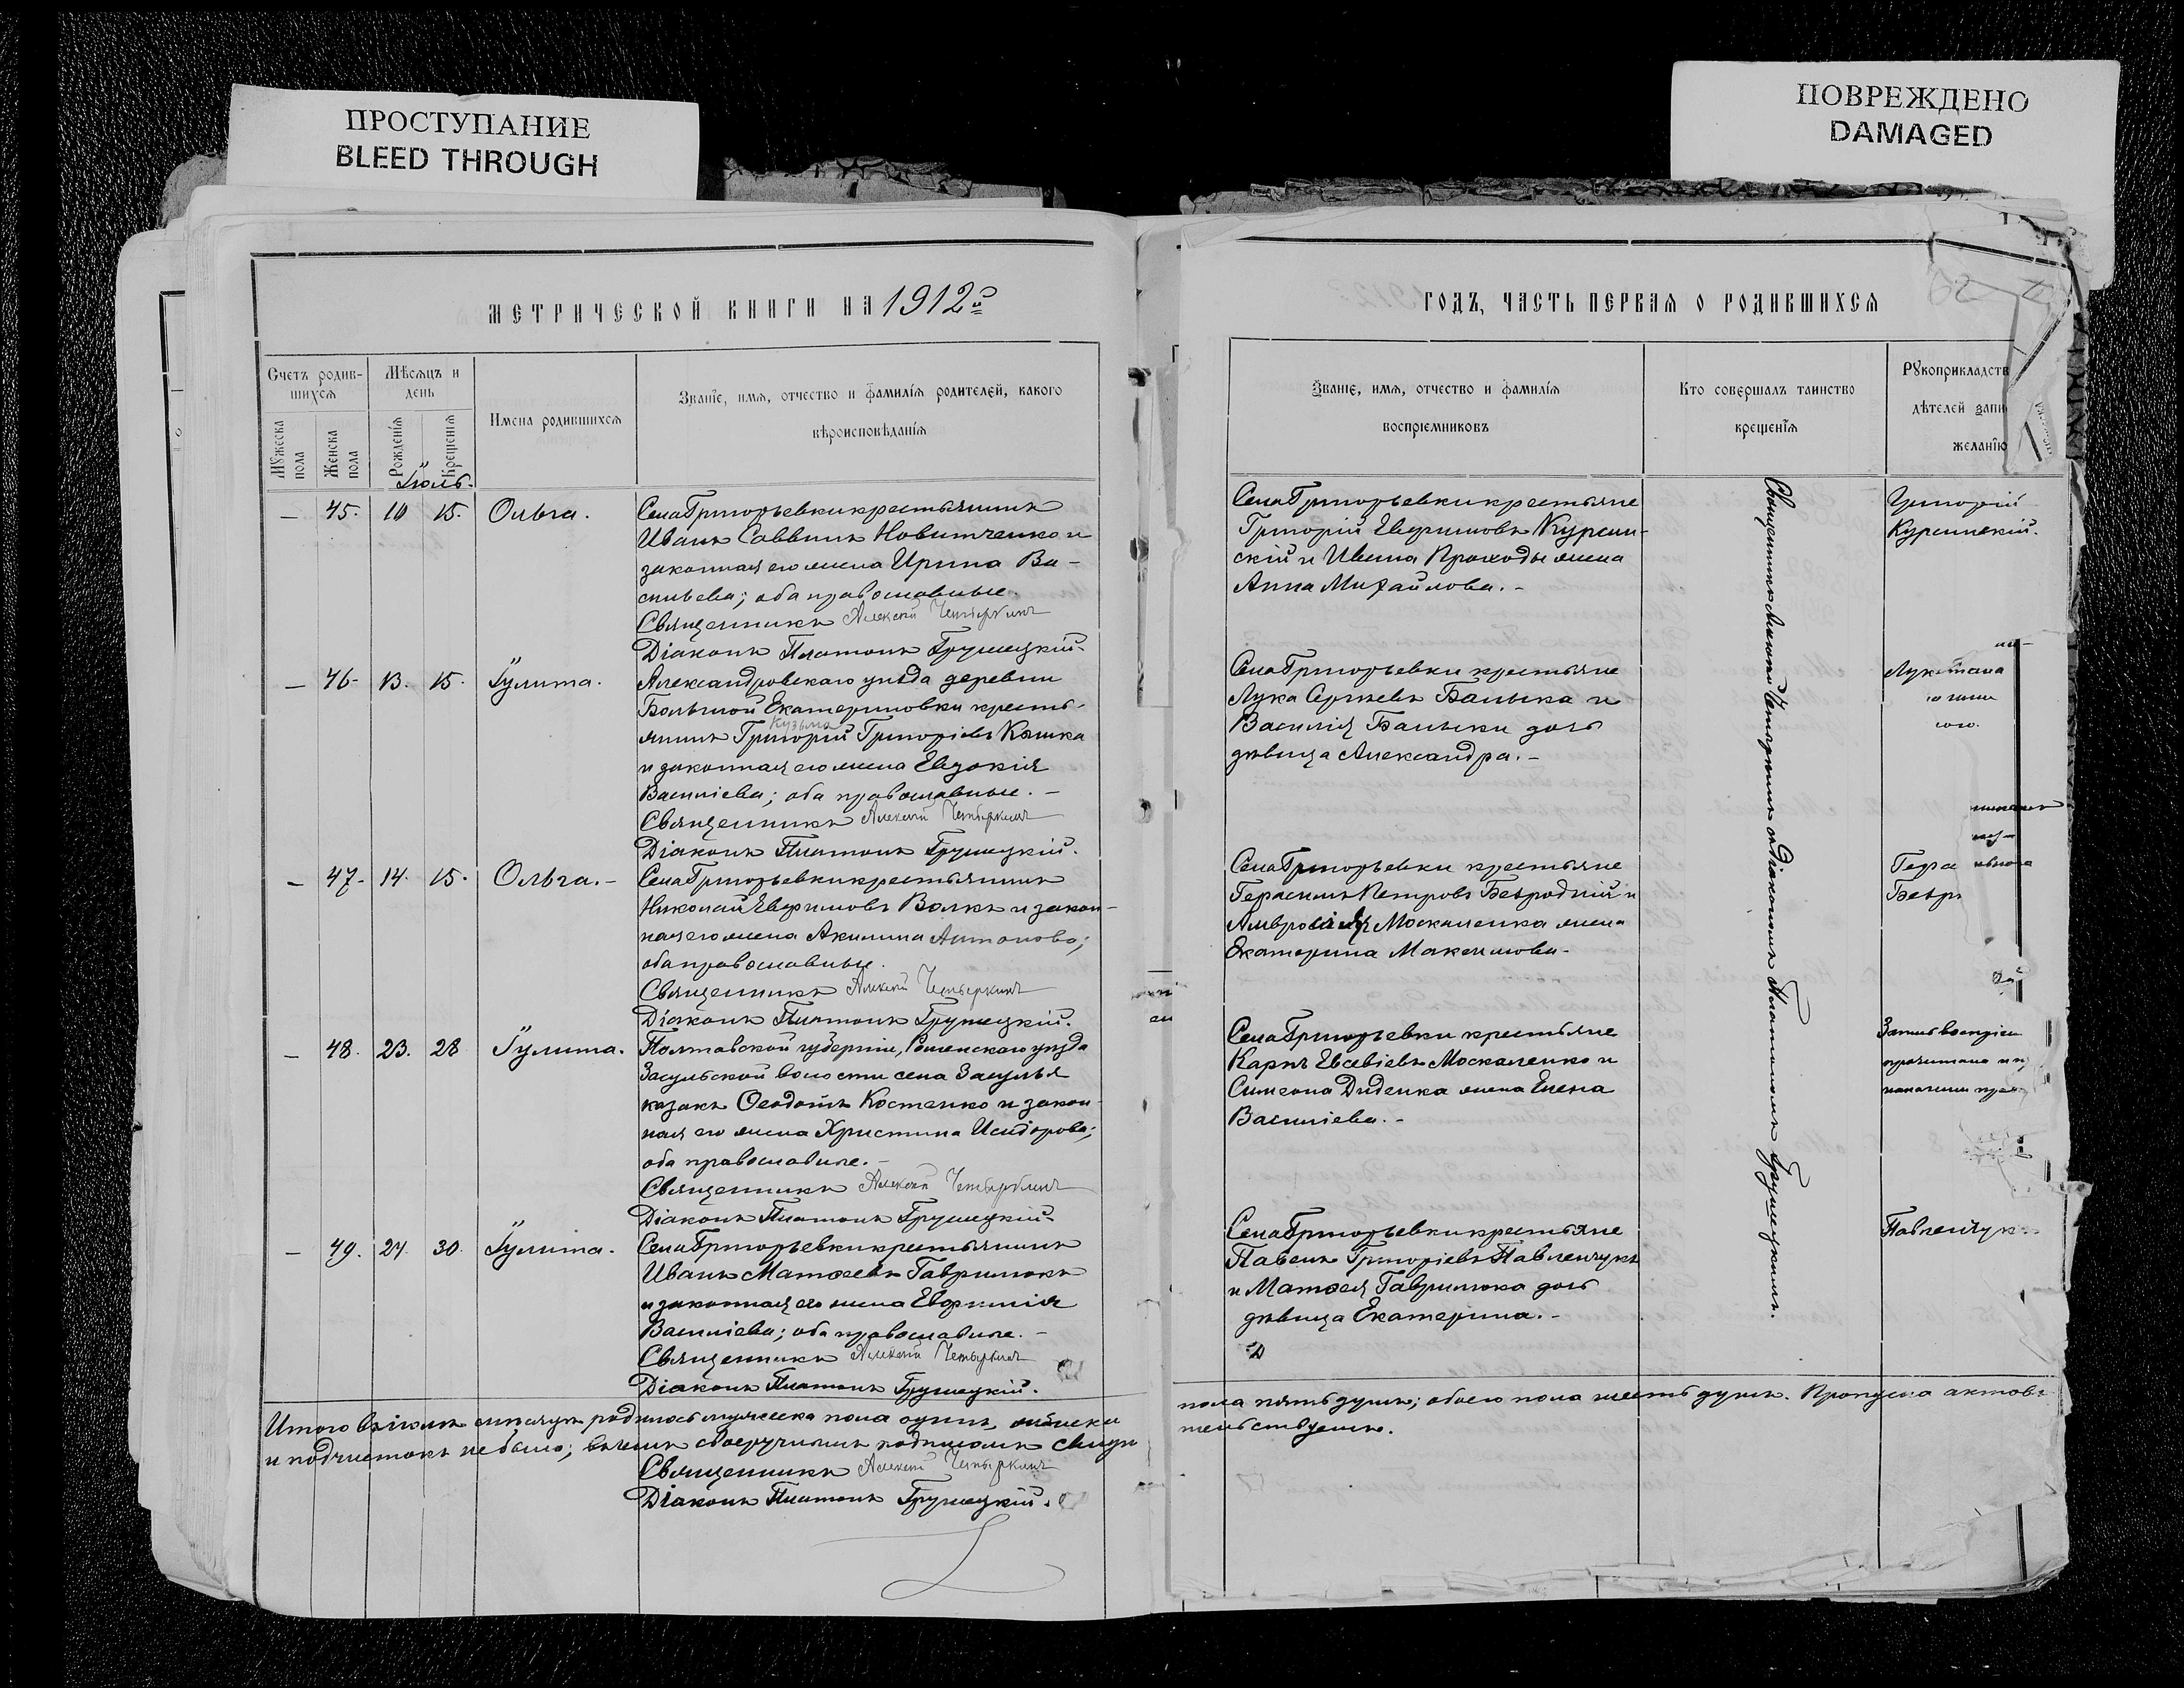 ПРОСТУПАНИЕ
BLEED THROUGH
ПОВРЕЖДЕНО
DAMAGED
МЕТРИЧЕСКОЙ КНИГИ НА 1912 й
Счетъ родив-
шихся
Мужеска
пола
Женска
пола
Мѣсяцъ и
день
Рожденія
Крещенія
Имена родившихся
Званіе, имя, отчество и фамилія родителей, какого
вѣроисповѣданія
Іюль.
— 45. 10 15. Ольга.
Села Григорьевки крестьянинъ
Иванъ Саввинъ Новитченко и
законная его жена Ирина Ва-
сильева; оба православные.
Священникъ Алексій Четыркинъ
Діаконъ Платонъ Грушецкій.
— 46. 13. 15. Іулита.
Александровскаго уѣзда деревни
Большой Екатериновки кресть-
Кузьма
янинъ Григорій Григоріевъ Кошка
и законная его жена Евдокія
Василіева; оба православные. —
Священникъ Алексій Четыркинъ
Діаконъ Платонъ Грушецкій.
— 47. 14. 15. Ольга. —
Села Григорьевки крестьянинъ
Николай Евфимовъ Волкъ и закон-
ная его жена Акилина Антонова;
оба православные.
Священникъ Алексій Четыркинъ
Діаконъ Платонъ Грушецкій.
— 48. 23. 28 Іулита.
Полтавской губерніи, Роменскаго уѣзда
Засульской волости села Засулья
козакъ Ѳеодотъ Костенко и закон-
ная его жена Христина Исидорова;
оба православные. —
Священникъ Алексій Четыркинъ
Діаконъ Платонъ Грушецкій.
— 49. 24. 30. Іулита.
Села Григорьевки крестьянинъ
Иванъ Матѳеевъ Гаврилюкъ
и законная его жена Евфимія
Василіева; оба православные. —
Священникъ Алексій Четыркинъ
Діаконъ Платонъ Грушецкій.
Итого въ іюлѣ мѣсяцѣ родилось мужеска пола одинъ, женска
и подчистокъ не было; въ чемъ своеручнымъ подписомъ свидѣ
Священникъ Алексій Четыркинъ
Діаконъ Платонъ Грушецкій.
ГОДЪ, ЧАСТЬ ПЕРВАЯ О РОДИВШИХСЯ
Званіе, имя, отчество и фамилія
воспріемниковъ
Кто совершалъ таинство
крещенія
Рукоприкладств
дѣтелей запи
желанію
Села Григорьевки крестьяне
Григорій Евфимовъ Куршин-
скій и Ивана Проходы жена
Анна Михайлова. —
Григорій
Куршинскій.
Села Григорьевки крестьяне
Лука Сергѣевъ Балыка и
Василія Балыки дочь
дѣвица Александра. —
Села Григорьевки крестьяне
Герасимъ Петровъ Безродній и
Амвросія Москаленка жена
Екатерина Максимова.
Гера
Безр
Села Григорьевки крестьяне
Карпъ Евсевіевъ Москаленко и
Симеона Диденка жена Елена
Василіева. —
Села Григорьевки крестьяне
Павелъ Григоріевъ Павленчукъ
и Матѳея Гаврилюка дочь
дѣвица Екатерина. —
Павленчукъ
Священникъ Алексій Четыркинъ съ Діакономъ Платономъ Грушецкимъ.
пола пять душъ; обоего пола шесть душъ. Пропуска актовъ
тельствуемъ.